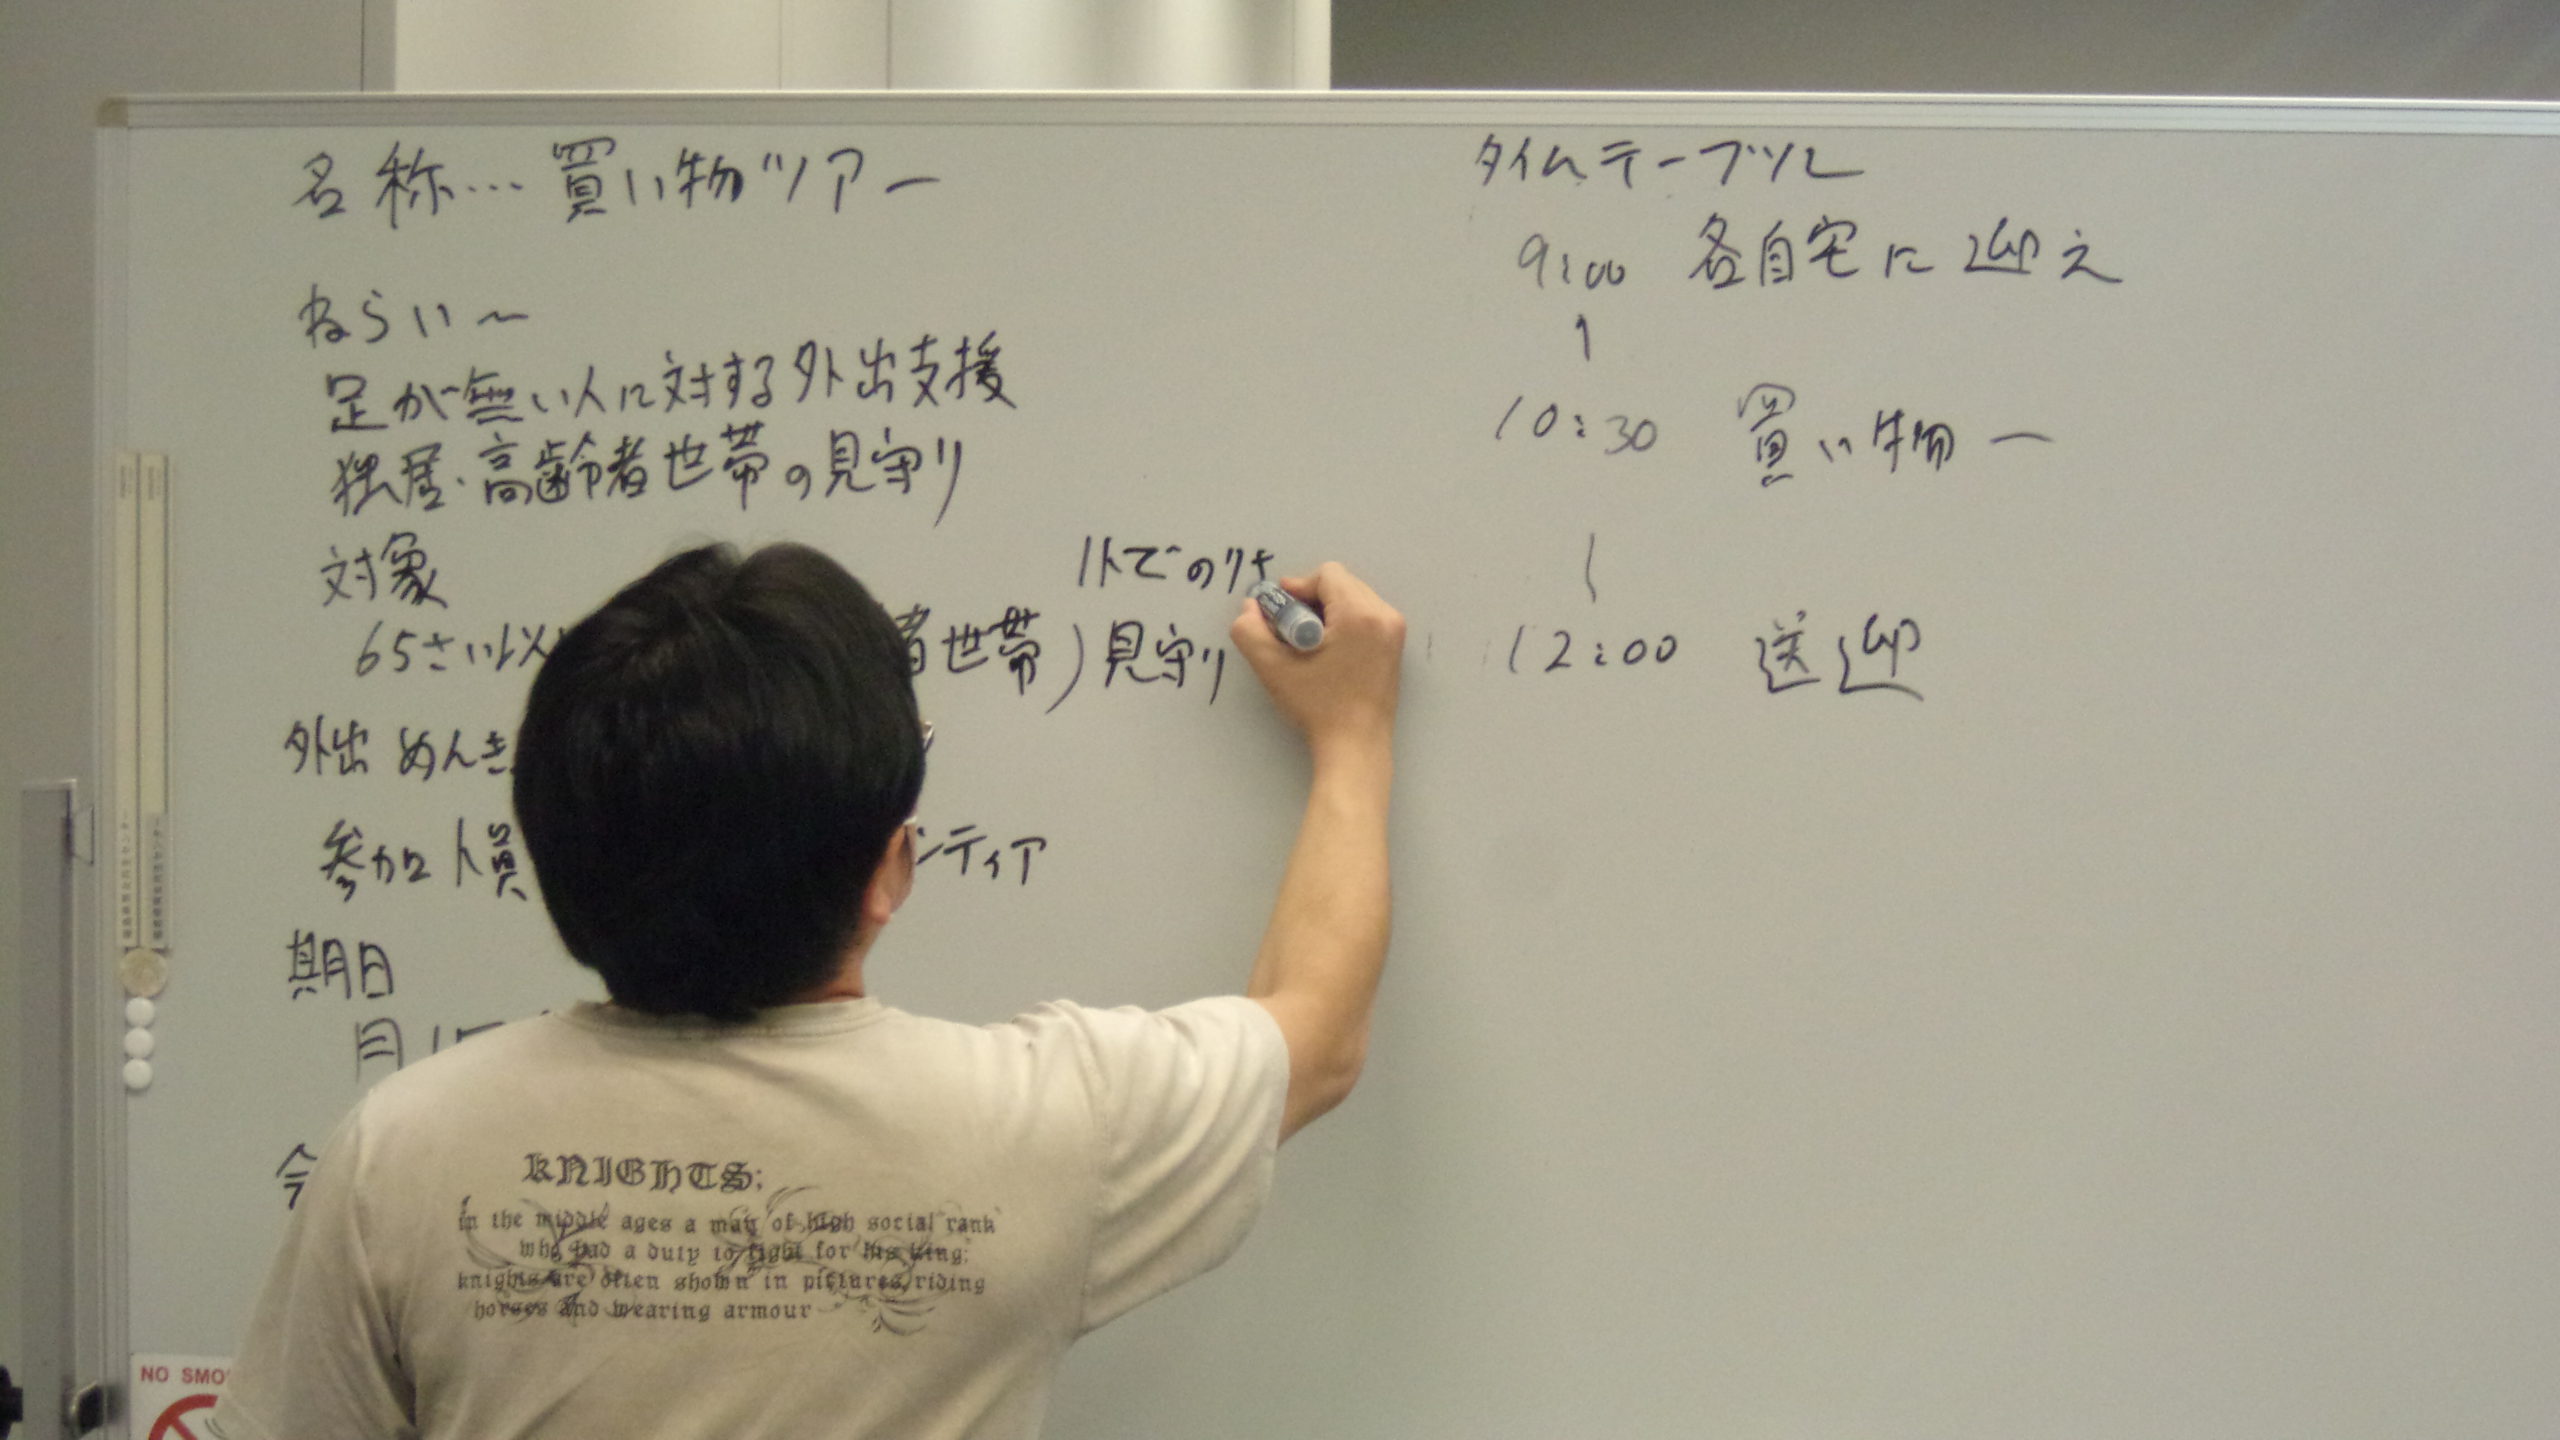 名称…買い物ツアー
ねらい〜
足が無い人に対する外出支援
独居・高齢者世帯の見守り
対象
65さい以
者世帯)見守り
外出 めんき
参加人員
ンティア
期日
月1
タイムテーブル
9:00 各自宅に迎え
10:30 買い物ー
12:00 送迎
KNIGHTS;
in the middle ages a man of high social rank
who had a duty to fight for his king;
knights are often shown in pictures, riding
horses and wearing armour
NO SMO